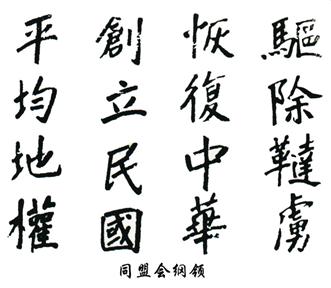 驅除韃虜
恢復中華
創立民國
平均地權
同盟会纲领